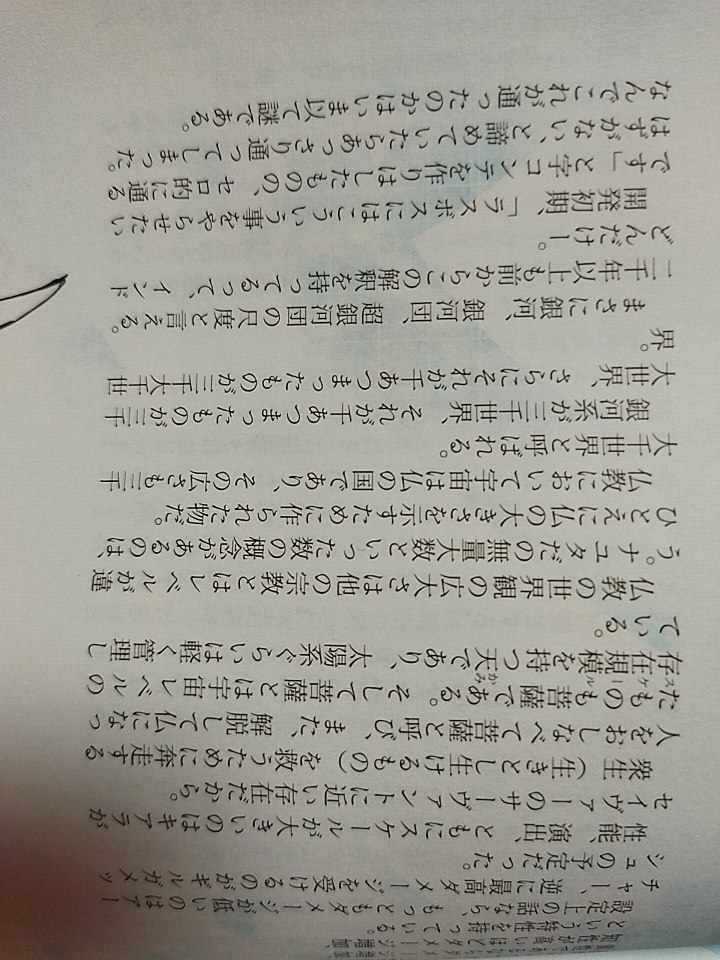 知性が高いほどダメージ増加、
という特性を持っている。
設定上の話なら、もっともダメージが低いのはアー
チャー、逆に最高ダメージを受けるのがギルガメッ
シュの予定だった。
性能、演出、ともにスケールが大きいのはキアラが
セイヴァーのサーヴァントに近い存在だから。
衆生（生きとし生けるもの）を救うために奔走する
人をおしなべて菩薩と呼び、また、解脱して仏になっ
たものも菩薩である。そして菩薩とは宇宙レベルの
スケール かみ
存在規模を持つ天であり、太陽系ぐらいは軽く管理し
ている。
仏教の世界観の広大さは他の宗教とはレベルが違
う。ナユタだの無量大数といった数の概念があるのは、
ひとえに仏の大きさを示すために作られた物だ。
仏教において宇宙は仏の国であり、その広さも三千
大千世界と呼ばれる。
銀河系が三千世界、それが千あつまったものが三千
大世界、さらにそれが千あつまったものが三千大千世
界。
まさに銀河、銀河団、超銀河団の尺度と言える。
二千年以上も前からこの解釈を持ってるって、インド
どんだけー。
開発初期、「ラスボスにはこういう事をやらせたい
です」と字コンテを作りはしたものの、ゼロ的に通る
はずがない、と諦めていたらあっさり通ってしまった。
なんでこれが通ったのかはいま以て謎である。